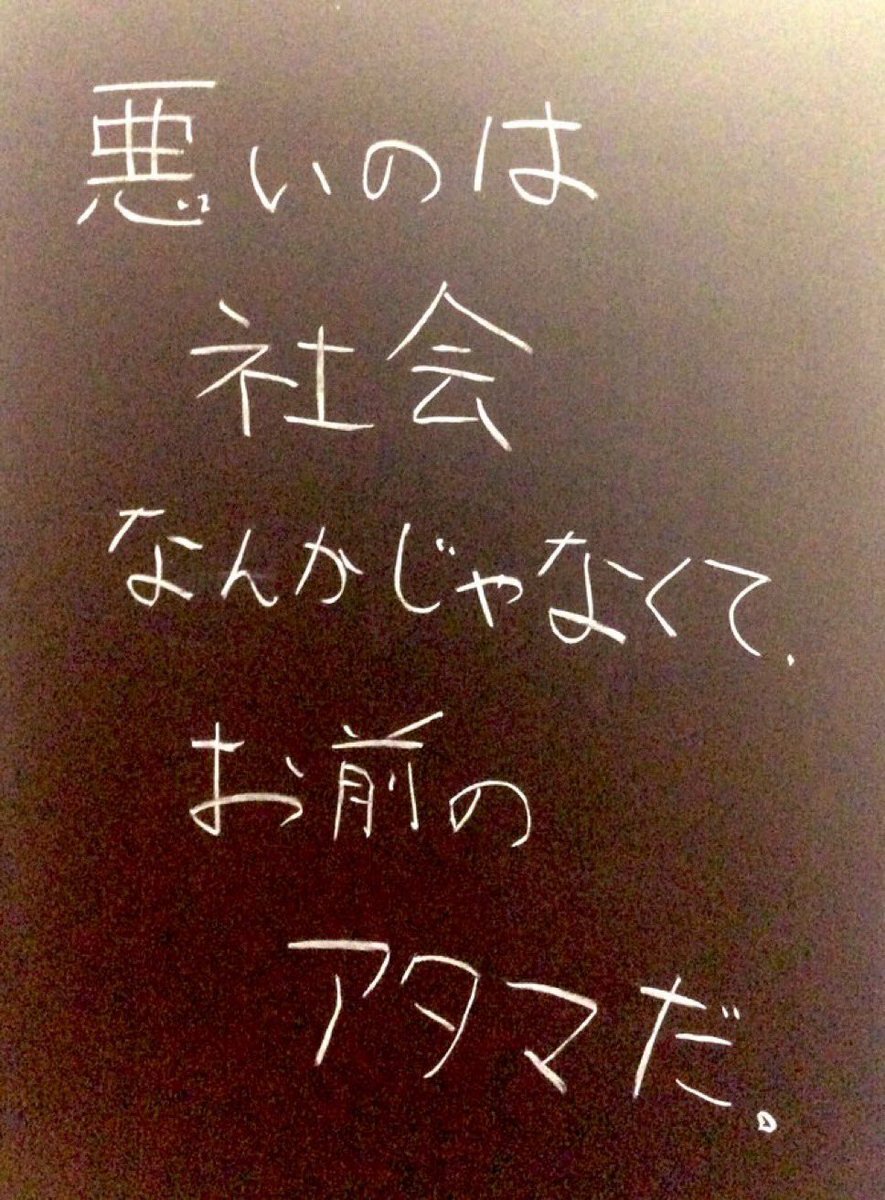 悪いのは
社会
なんかじゃなくて.
お前の
アタマだ。